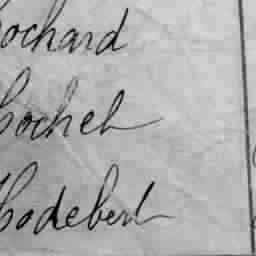 Cochard
Cochet
Codebert